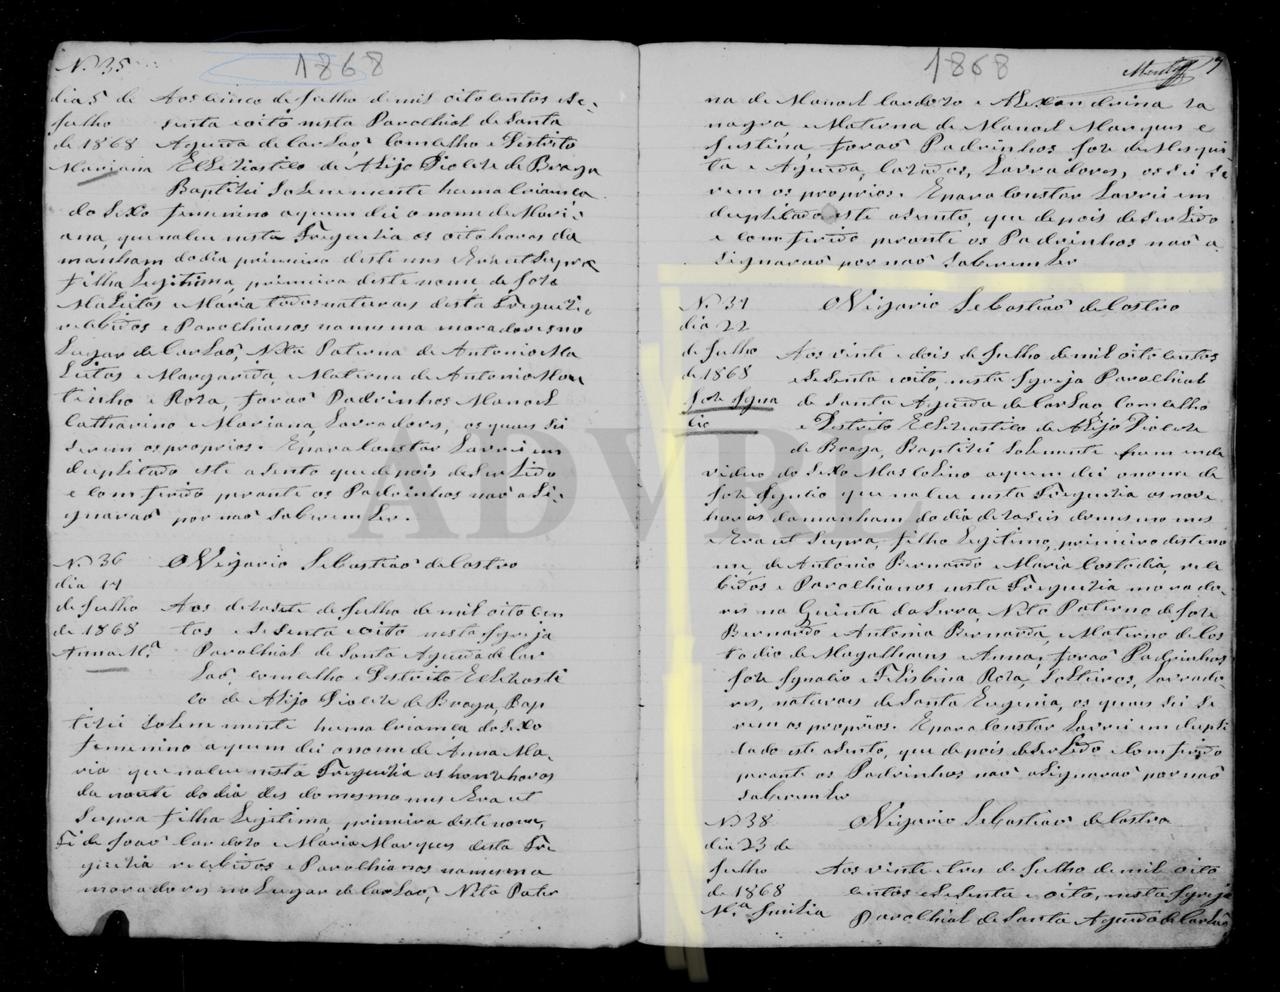 N. 35
1868
dia 5 de
Julho
de 1868
Mariana
Aos cinco de Julho de mil oito centos e se-
senta e oito nesta Parochial de Santa
Agueda de Carlaõ, Comselho e Distrito
Eclesiastico de Alijo Diocese de Braga
Baptizei Solenemente huma Criança
do Sexo femenino aquem dei o nome de Mari-
ana, que nasceu nesta Freguezia as oito horas da
manham do dia primeiro deste mes Era ut Supra
filha Legitima, primeira deste nome de José
e Maria todos naturais desta Freguezia
recebidos e Parochianos na mesma moradores no
Lugar de Carlaõ, Neta Paterna de Antonio Ma
e Margarida, e Materna de Antonio Mou
tinho e Roza, foraõ Padrinhos Manoel
Catharino e Mariana, Lavradores, os quais sei
serem os proprios. E para Constar Lavrei em
duplicado este asento que depois de ser Lido
e comferido perante os Padrinhos naõ asi-
gnaraõ por naõ Saberem Ler.
O Vigario Sebastiaõ de Castro
N. 36
dia 17
de Julho
de 1868
Anna M.ª
Aos dezasete de Julho de mil oito cen
tos e sesenta e oito nesta Igreja
Parochial de Santa Agueda de Car
laõ, comselho e Distrito Eclesiasti
co de Alijo Diocese de Braga, Bap
tizei Solenemente huma criança do Sexo
femenino aquem dei o nome de Anna Ma-
ria que nasceu nesta Freguezia as honze horas
da noute do dia des do mesmo mes Era ut
Supra filha Legitima, primeira deste nome,
de Joaõ Cardozo e Maria Marques desta Fre
guezia recebidos e Parochianos na mesma
moradores no Lugar de Carlaõ, Neta Pater
1868
na de Manoel Cardozo e Alexandrina Ta
nagra, e Materna de Manoel Marques e
Justina, foraõ Padrinhos José de Misqui
ta e Agueda, cazados, Lavradores, os sei se
rem os proprios. E para Constar Lavrei em
duplicado este asento, que depois de ser Lido
e comferido perante os Padrinhos naõ a
signaraõ por naõ Saberem Ler
O Vigario Sebastiaõ de Castro
N. 37
dia 22
de Julho
de 1868
José Igna
cio
Aos vinte e dois de Julho de mil oito centos
e sesenta e oito, nesta Igreja Parochial
de Santa Agueda de Carlaõ Comselho
e Distrito Eclesiastico de Alijo Diocese
de Braga, Baptizei Solenemente hum indi
viduo do Sexo Mascolino aquem dei o nome de
José Ignacio que nasceu nesta Freguezia as nove
horas da manham do dia dezaseis do mesmo mes
e Era ut Supra, filho Legitimo, primeiro deste no
me, de Antonio Bernardo e Maria Custodia, rece
bidos e Parochianos nesta Freguezia morado-
res na Quinta da Serra, Neto Paterno de José
Bernardo e Antonia Bernarda, e Materno de Cus
todio de Magalhaens e Anna, foraõ Padrinhos
José Ignacio e Felisbina Roza, Solteiros, Lavrado-
res, naturais de Santa Eugenia, os quais sei se
rem os proprios. E para Constar Lavrei em dupli
cado este asento, que depois de ser Lido e comferido
perante os Padrinhos naõ asignaraõ por naõ
saberem Ler
O Vigario Sebastiaõ de Castro
N. 38
dia 23 de
Julho
de 1868
M.ª Emilia
Aos vinte e tres de Julho de mil oito
centos e sesenta e oito, nesta Igreja
Parochial de Santa Agueda de Carlaõ
ADVRL